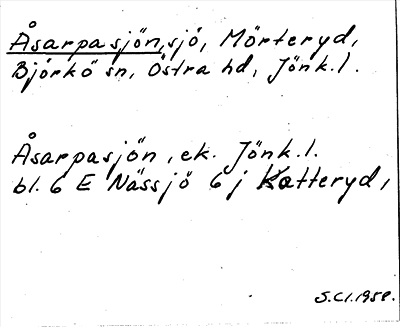 Åsarpasjön, sjö, Mörteryd,
Björkö sn, Östra hd, Jönk.l.
Åsarpasjön, ek. Jönk.l.
bl. 6 E Nässjö 6 j Katteryd,
S.Cl. 1958.